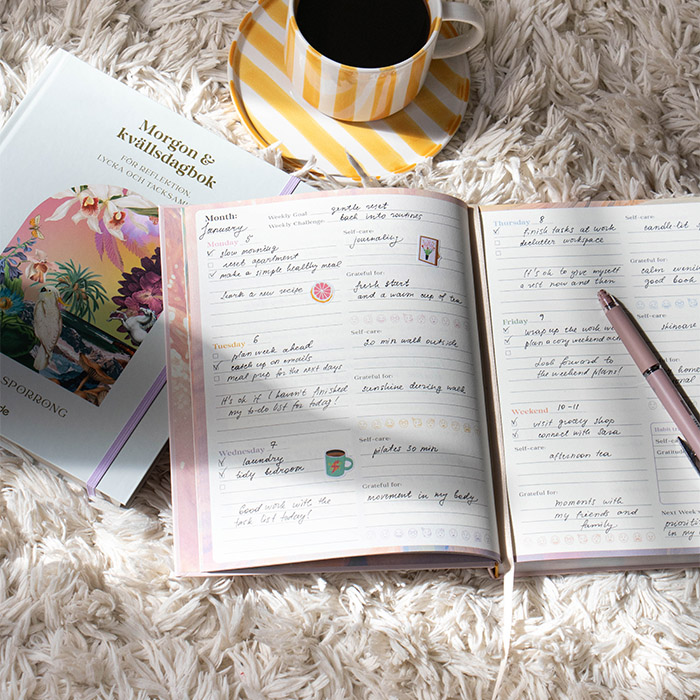 Morgon &
kvällsdagbok
FÖR REFLEKTION,
LYCKA OCH TACKSAM
SPORRONG
Month:
January
Weekly Goal: gentle reset
Weekly Challenge: back into routines
Monday 5
slow morning
reset apartment
make a simple healthy meal
work a new recipe
Self-care:
journaling
Grateful for:
fresh start
and a warm cup of tea
Tuesday 6
plan week ahead
catch up on emails
meal prep for the next days
It's ok if I haven't finished
my to-do list for today!
Self-care:
20 min walk outside
Grateful for:
sunshine during walk
Wednesday 7
laundry
tidy bedroom
Good work with the
task list today!
Self-care:
pilates 30 min
Grateful for:
movement in my body
Thursday 8
finish tasks at work
declutter workspace
It's ok to give myself
a rest now and then
Self-care:
candle-lit
Grateful for:
calm evenin
good book
Friday 9
wrap up the work
plan a cosy weekend
Look forward to
the weekend plans!
Self-care:
skincare
Weekend 10-11
visit grocery shop
connect with Sara
Self-care:
afternoon tea
Grateful for:
moments with
my friends and
family
Habit
Self-care
Gratitude
Next Week's
prioriti
in my